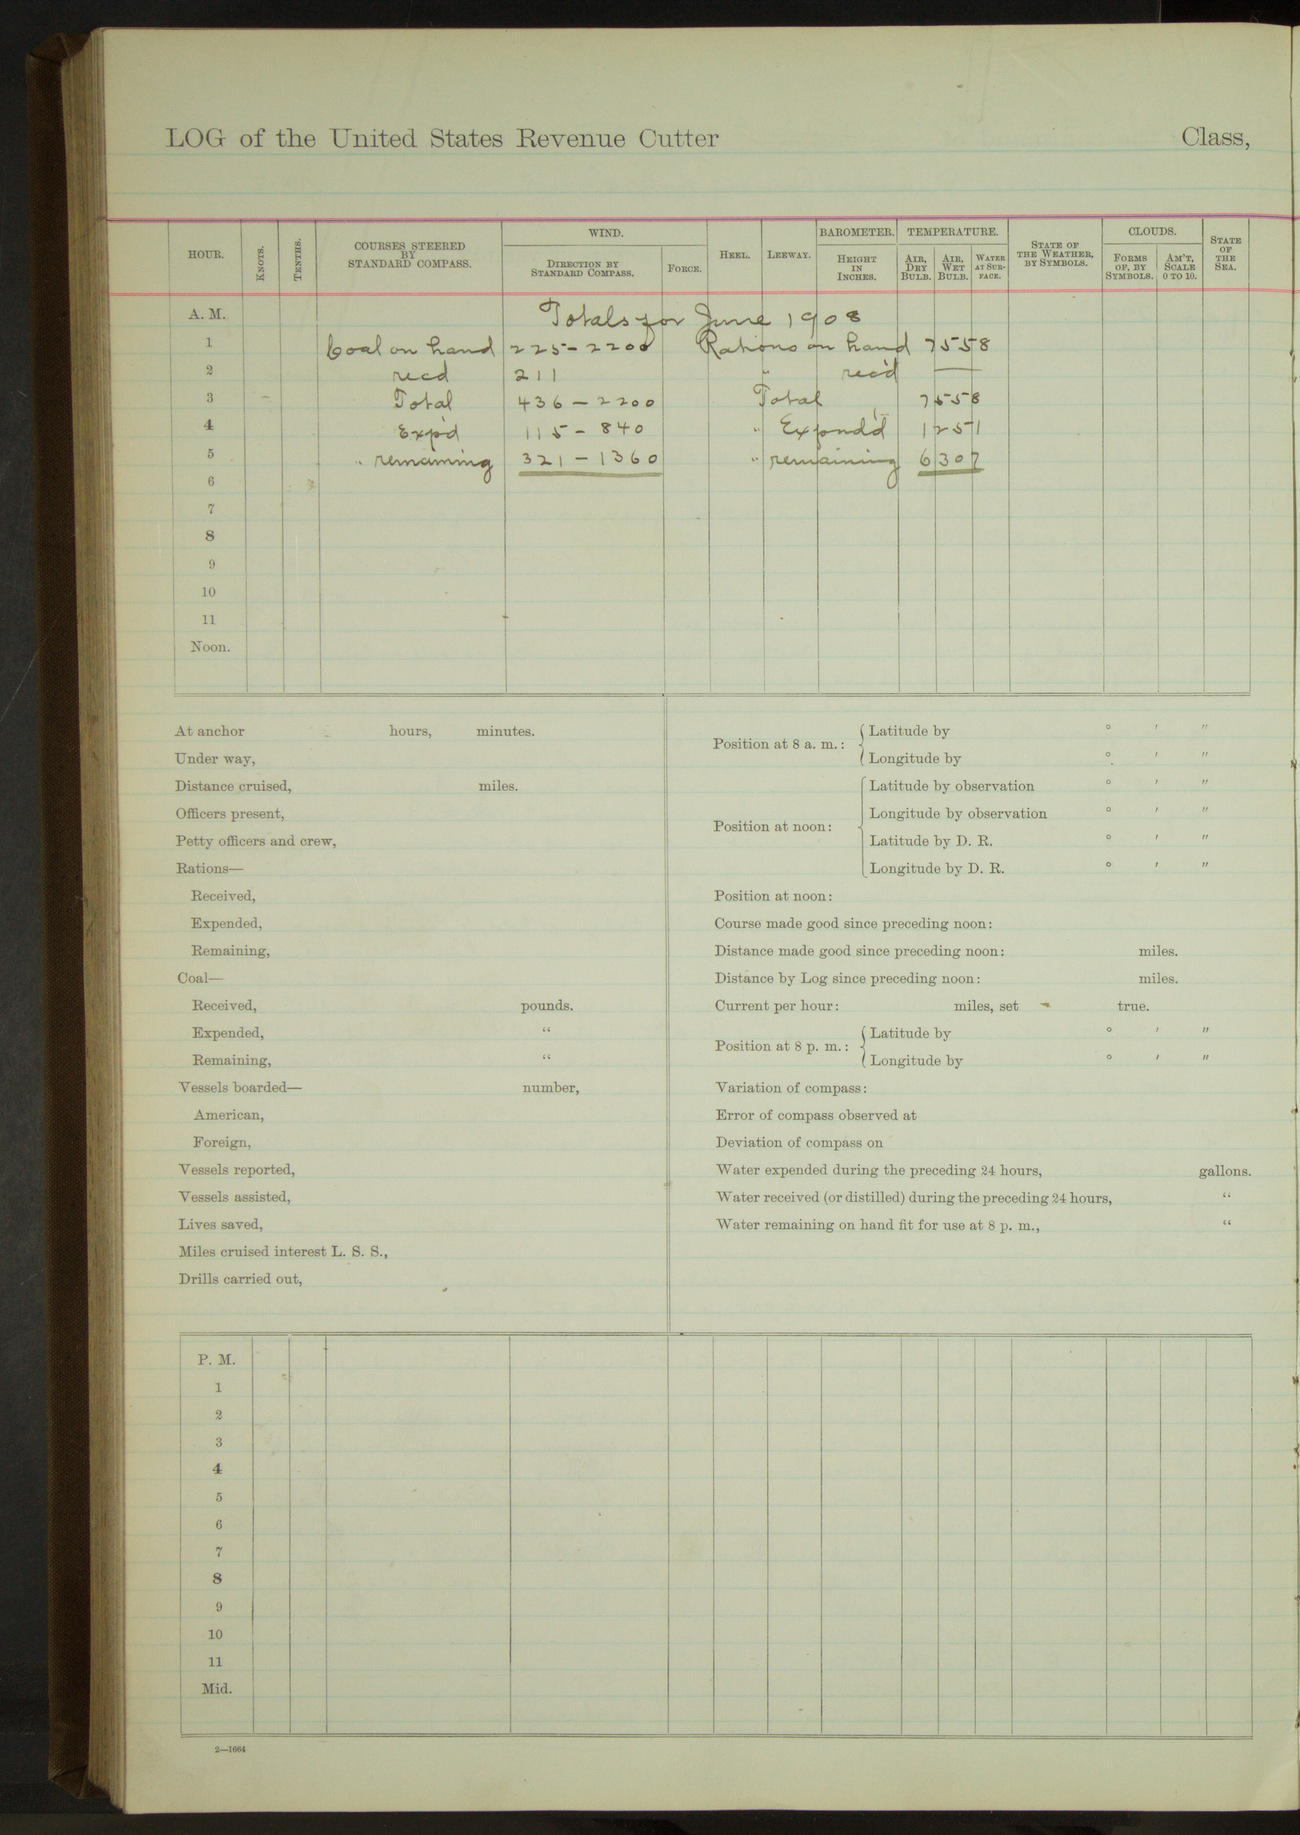 LOG of the United States Revenue Cutter Class,
HOUR. KNOTS. TENTHS. COURSES STEERED BY STANDARD COMPASS. WIND. DIRECTION BY STANDARD COMPASS. FORCE. HEEL. LEEWAY. BAROMETER. HEIGHT IN INCHES. TEMPERATURE. AIR, DRY BULB. AIR, WET BULB. WATER AT SURFACE. STATE OF THE WEATHER, BY SYMBOLS. CLOUDS. FORMS OF, BY SYMBOLS. AM'T, SCALE 0 TO 10. STATE OF THE SEA.
A. M. Totals for June 1908
1 Coal on hand 225-2200 Rations on hand 7558
2 recd 211 " rec'd —
3 Total 436-2200 Total 7558
4 Exp'd 115-840 " Expnd'd 1251
5 " remaining 321-1360 " remaining 6307
6
7
8
9
10
11
Noon.
At anchor hours, minutes.
Under way,
Distance cruised, miles.
Officers present,
Petty officers and crew,
Rations—
Received,
Expended,
Remaining,
Coal—
Received, pounds.
Expended, "
Remaining, "
Vessels boarded— number,
American,
Foreign,
Vessels reported,
Vessels assisted,
Lives saved,
Miles cruised interest L. S. S.,
Drills carried out,
Position at 8 a. m.: Latitude by ° ' "
Longitude by ° ' "
Position at noon: Latitude by observation ° ' "
Longitude by observation ° ' "
Latitude by D. R. ° ' "
Longitude by D. R. ° ' "
Position at noon:
Course made good since preceding noon:
Distance made good since preceding noon: miles.
Distance by Log since preceding noon: miles.
Current per hour: miles, set true.
Position at 8 p. m.: Latitude by ° ' "
Longitude by ° ' "
Variation of compass:
Error of compass observed at
Deviation of compass on
Water expended during the preceding 24 hours, gallons.
Water received (or distilled) during the preceding 24 hours, "
Water remaining on hand fit for use at 8 p. m., "
P. M.
1
2
3
4
5
6
7
8
9
10
11
Mid.
2—1664